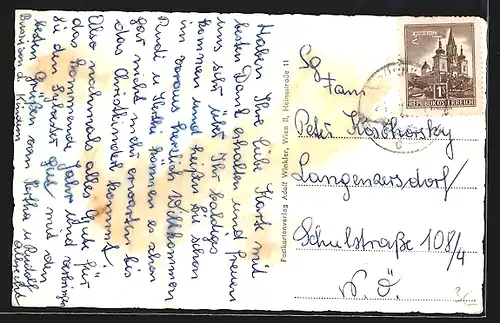 Haben Ihre liebe Karte mit
besten Dank erhalten und freuen
uns sehr über Ihr baldiges
kommen und heißen Sie schon
im voraus herzlich Willkommen
Rudi u. können es schon
gar nicht mehr erwarten bis
das Christkindl kommt.
Also nochmals alles Gute für
das kommende Jahr und verbringen
Sie den Sylvester gut mit den
besten Grüßen von u Rudolf
Bussen d. Kindern
Sg
Fam
Peter
Langenzersdorf/
Schulstraße 108/4
N. Ö.
Postkartenverlag Adolf Winkler, Wien II, Heinestraße 11
MARIAZELL
1S
REPUBLIK ÖSTERREICH